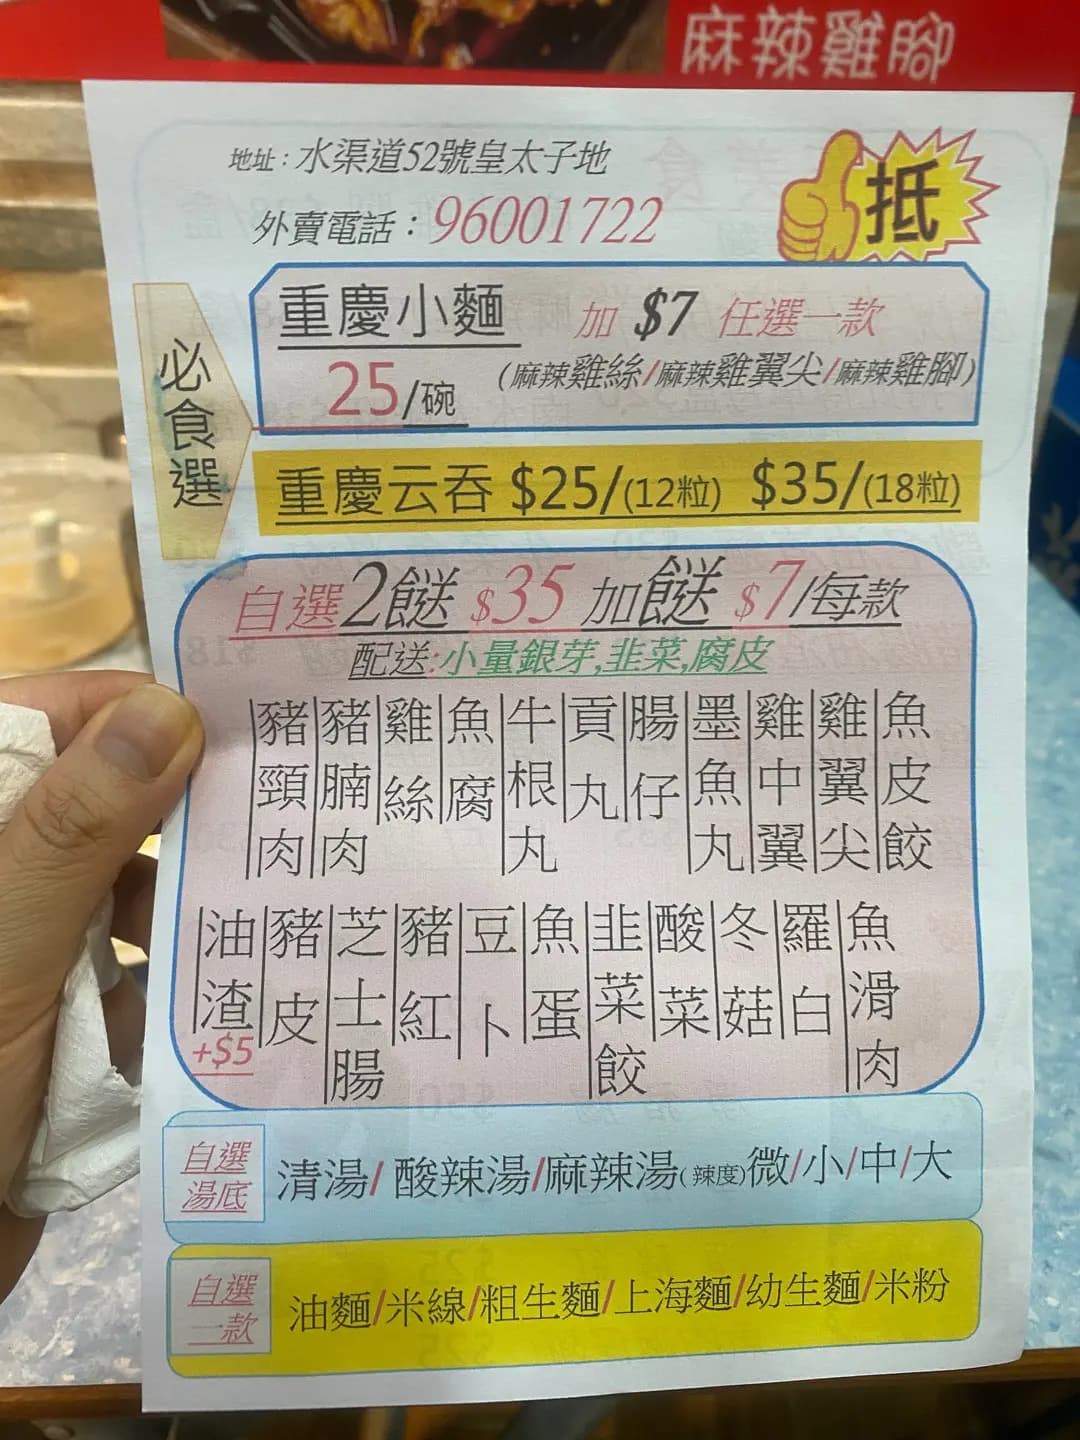 麻辣雞腳
地址：水渠道52號皇太子地
外賣電話：96001722
抵
必食選
重慶小麵 加 $7 任選一款
25/碗 (麻辣雞絲/麻辣雞翼尖/麻辣雞腳)
重慶云吞 $25/(12粒) $35/(18粒)
自選2餸 $35 加餸 $7/每款
配送:小量銀芽,韭菜,腐皮
豬頸肉 豬腩肉 雞絲 魚腐 牛根丸 貢丸 腸仔 墨魚丸 雞中翼 雞翼尖 魚皮餃
油渣+$5 豬皮 芝士腸 豬紅 豆卜 魚蛋 韭菜餃 酸菜 冬菇 羅白 魚滑肉
自選湯底
清湯/ 酸辣湯/麻辣湯(辣度)微/小/中/大
自選一款
油麵/米線/粗生麵/上海麵/幼生麵/米粉